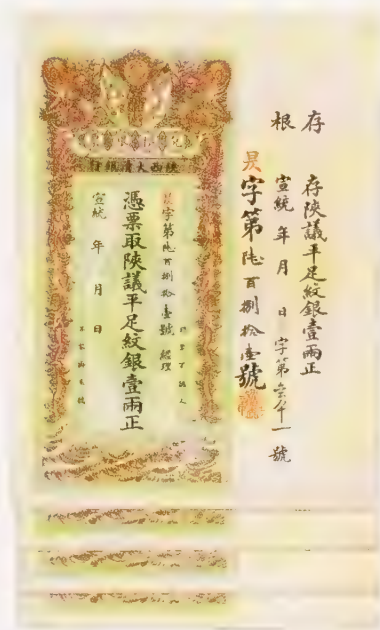 存根
存陝議平足紋銀壹兩正
宣統 年 月 日 字第 號
昃字第陸百捌拾壹號
陝西大清銀行
昃字第陸百捌拾壹號 經理
憑票取陝議平足紋銀壹兩正
宣統 年 月 日